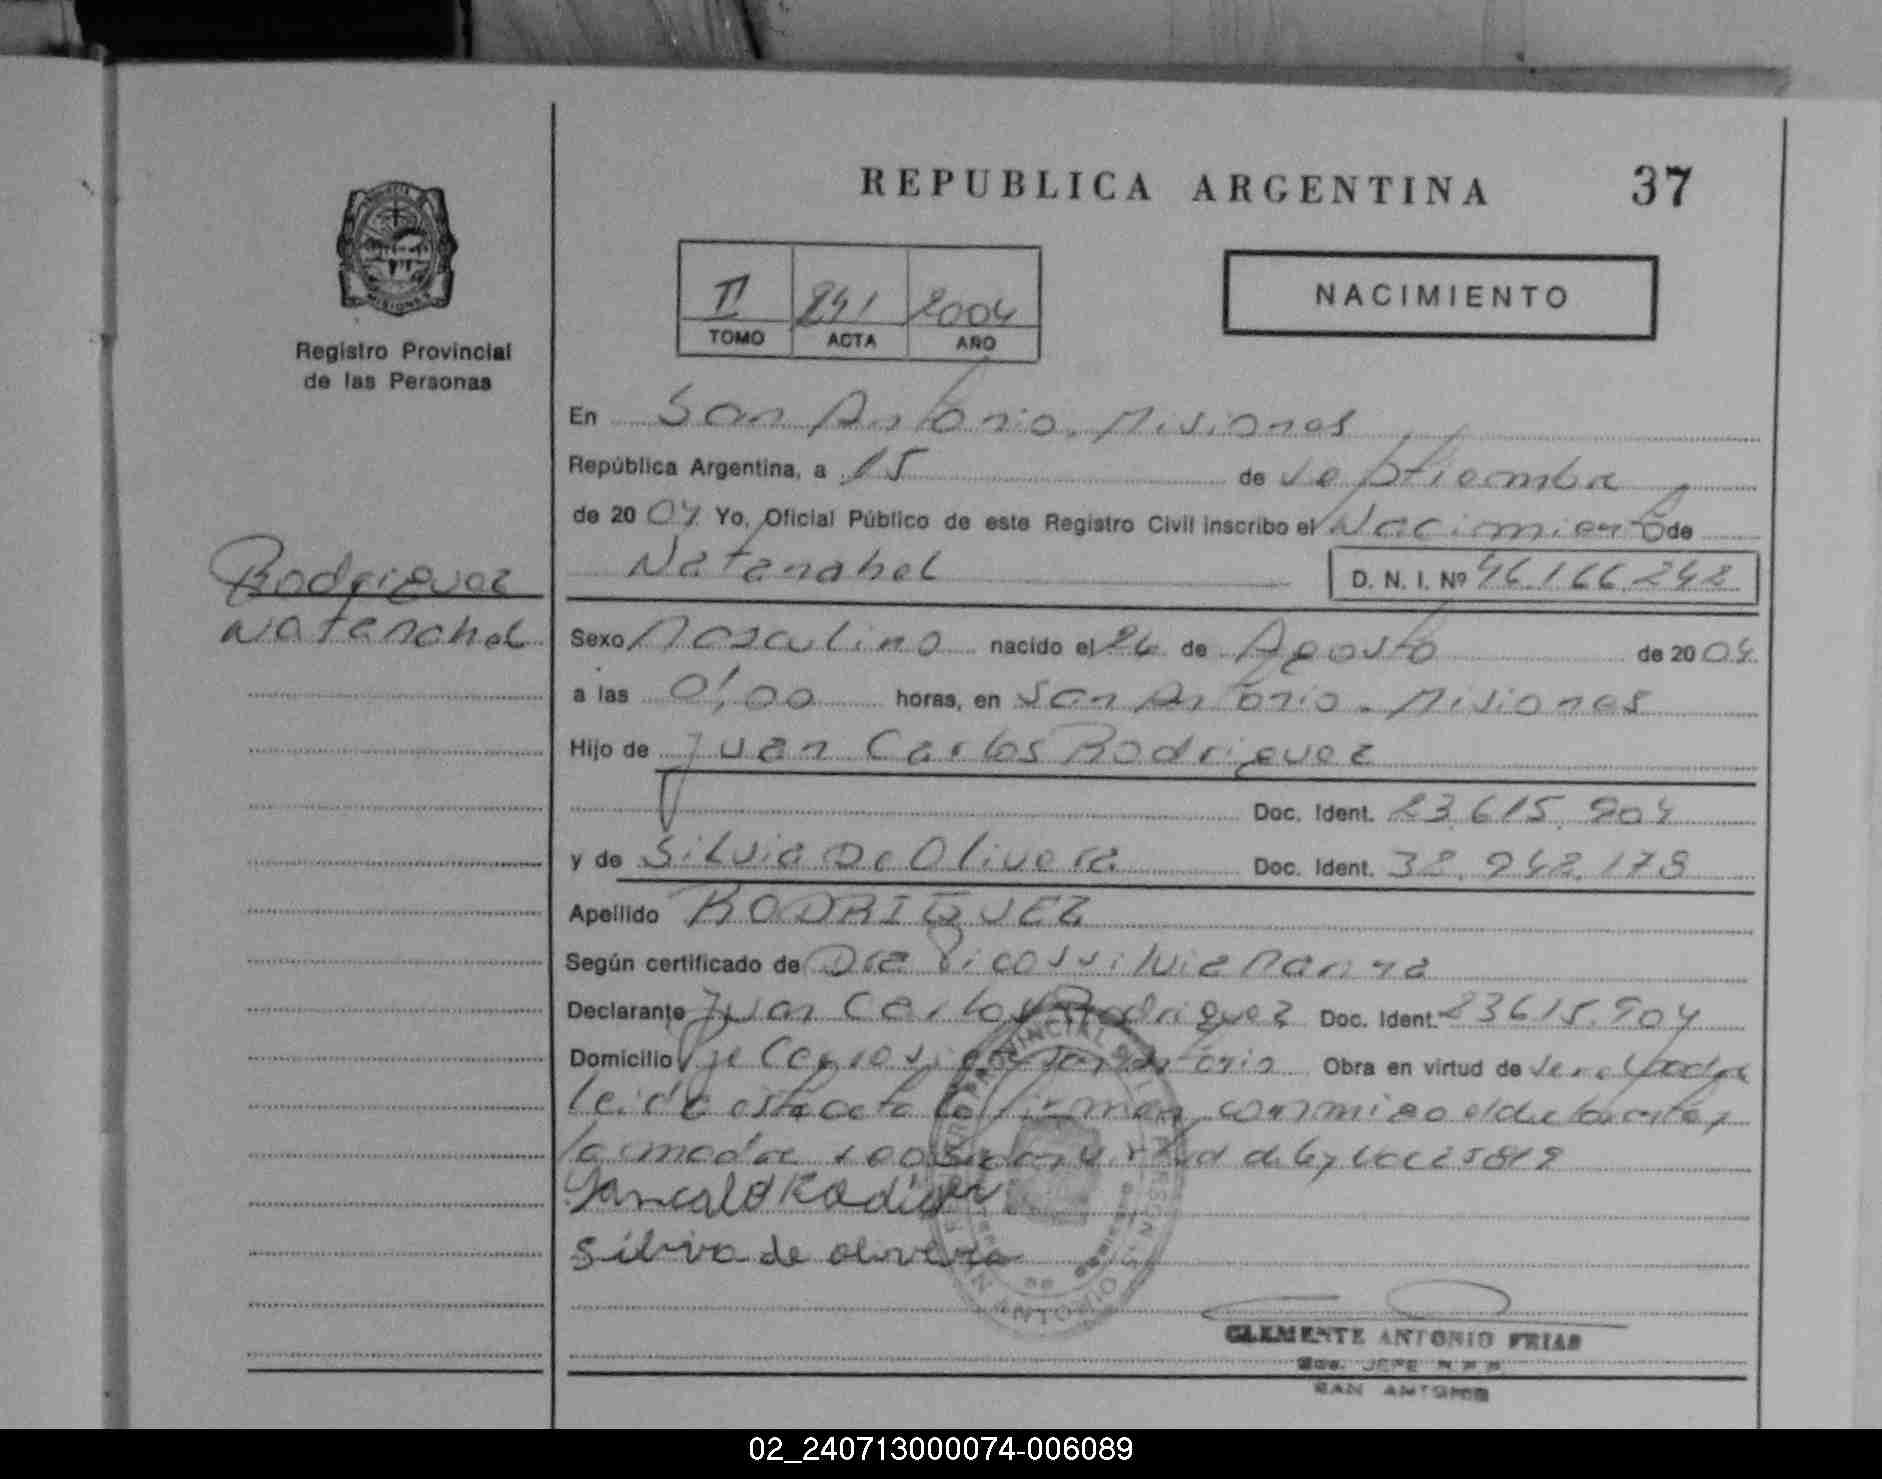 REPUBLICA ARGENTINA 37
NACIMIENTO
II 241 2004
TOMO ACTA AÑO
Registro Provincial
de las Personas
En San Antonio. Misiones
República Argentina, a 15 de septiembre
de 2004 Yo, Oficial Público de este Registro Civil inscribo el Nacimiento de
Natanahel D. N. I. Nº 46.166.242
Rodriguez
Natanahel
Sexo Masculino nacido el 24 de Agosto de 2004
a las 01,00 horas, en San Antonio. Misiones
Hijo de Juan Carlos Rodriguez
Doc. Ident. 23.615.904
y de Silvia De Olivera Doc. Ident. 38.942.178
Apellido RODRIGUEZ
Según certificado de Dra Silvia
Declarante Juan Carlos Rodriguez Doc. Ident. 23615.904
Domicilio San Antonio Obra en virtud de
leída esta acta la firman conmigo el declarante y
la madre
Silvia de olivera
CLEMENTE ANTONIO FRIAS
JEFE R.P.P.
SAN ANTONIO
02_240713000074-006089